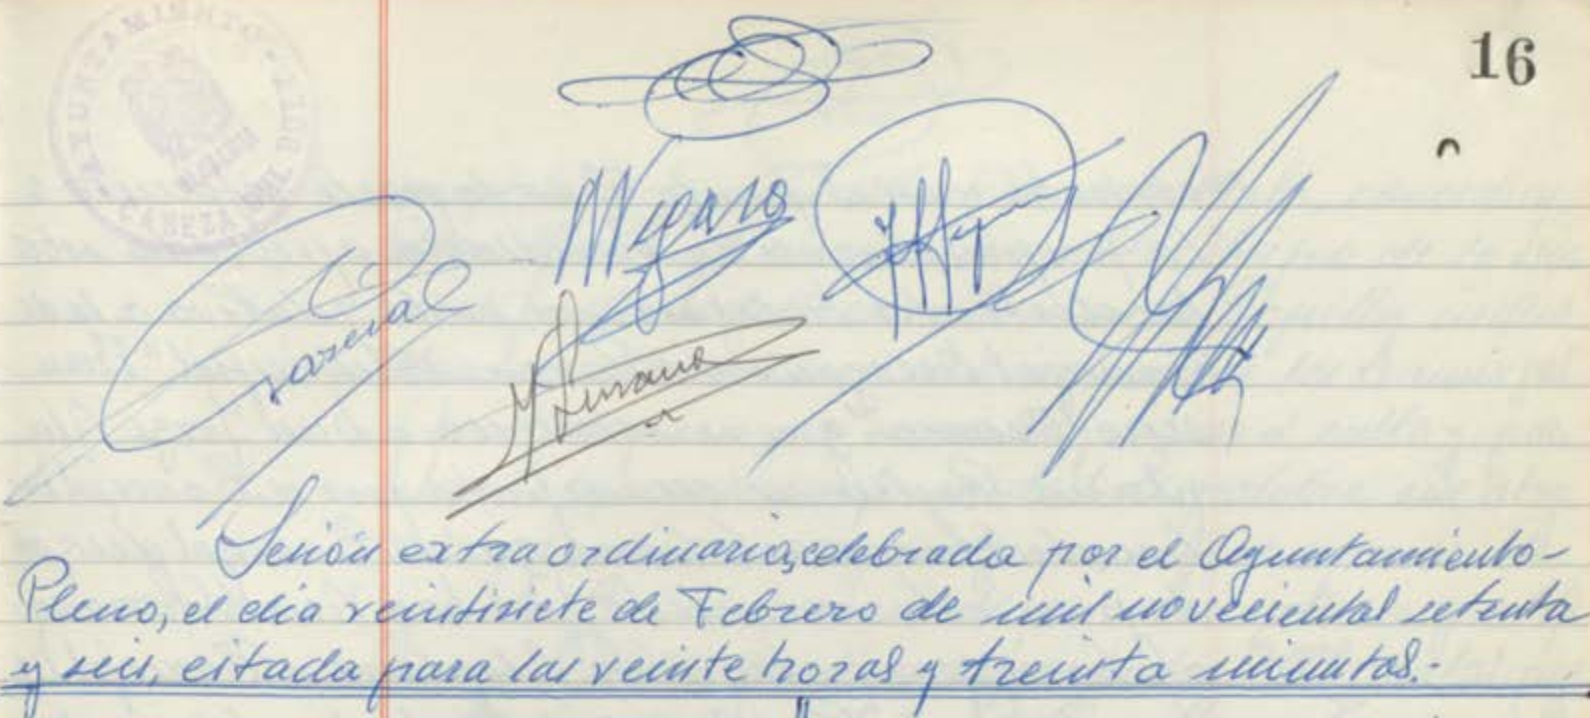 16
AYUNTAMIENTO
ALCALDIA
CABEZA DEL BUEY
Sesión extraordinaria, celebrada por el Ayuntamiento-
Pleno, el dia veintisiete de Febrero de mil novecientos setenta
y seis, citada para las veinte horas y treinta minutos.-